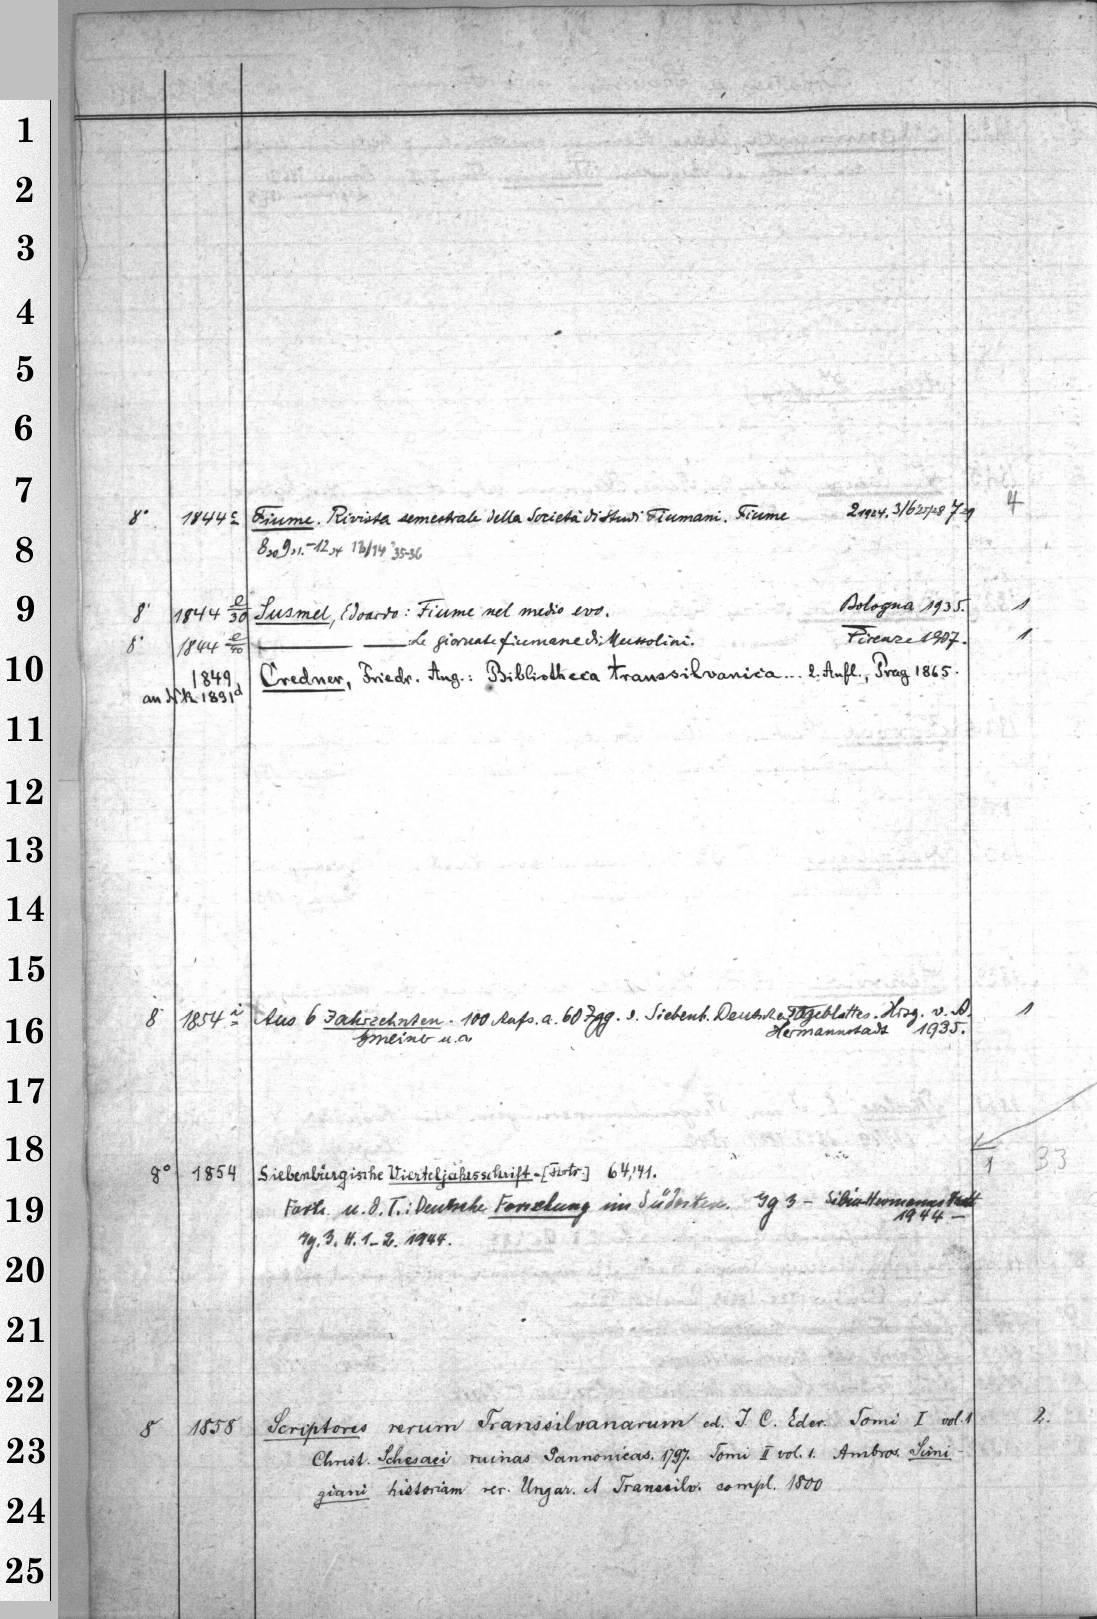 1
2
3
4
5
6
7
8° 1844 c Fiume. Rivista semestrale della Società di Studi Fiumani. Fiume 2 1924. 3/6 25/28 7 29 4
8 30 9 31.-12 34 13/14 35-36
8
9
8° 1844 e/30 Susmel, Edoardo: Fiume nel medio evo. Bologna 1935. 1
8° 1844 e/40 ——— —— Le giornate fiumane di Mussolini. Firenze 1937. 1
10
1849 Credner, Friedr. Aug.: Bibliotheca transsilvanica... 2. Aufl., Prag 1865.
an N.R. 1891d
11
12
13
14
15
8 1854 i Aus 6 Jahrzehnten. 100 Aufs. a. 60 Jgg. d. Siebenb. Deutschen Tageblattes. Hrsg. v. A. 1
16
u. a Hermannstadt 1935.
17
18
8° 1854 Siebenbürgische Vierteljahrsschrift - [Forts.] 64,'41. 1 33
19
Forts. u. d. T.: Deutsche Forschung im Südosten. Jg 3 - Sibiu-Hermannstadt
1944 -
Jg. 3. H. 1-2. 1944.
20
21
22
8 1858 Scriptores rerum Transsilvanarum ed. J. C. Eder. Tomi I vol. 1 2.
23
Christ. Schesaei ruinas Pannonicas. 1797. Tomi II vol. 1. Ambros. Simi-
giani historiam rer. Ungar. et Transsilv. compl. 1800
24
25